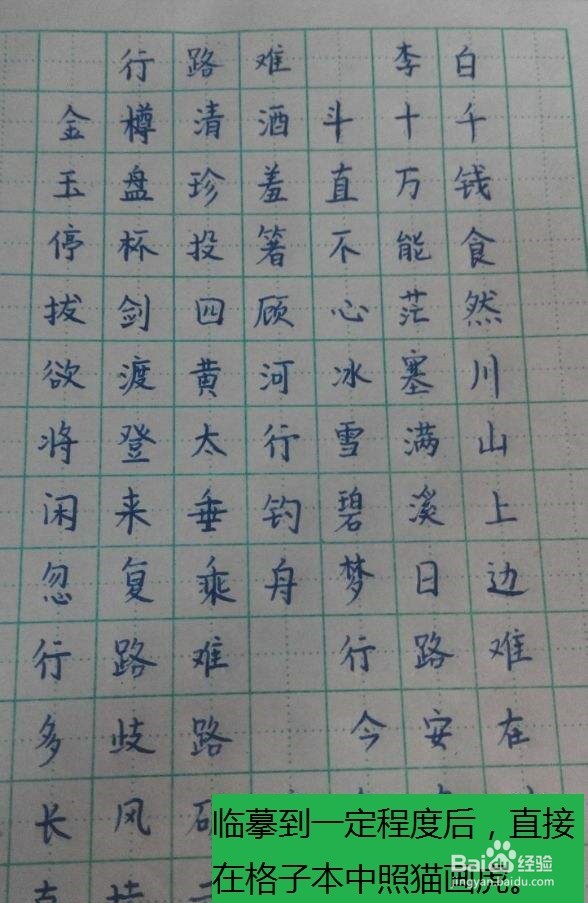 行路难 李白
金樽清酒斗十千
玉盘珍羞直万钱
停杯投箸不能食
拔剑四顾心茫然
欲渡黄河冰塞川
将登太行雪满山
闲来垂钓碧溪上
忽复乘舟梦日边
行路难 行路难
多歧路 今安在
长风
临摹到一定程度后，直接
在格子本中照猫画虎。
Baidu经验
jingyan.baidu.com